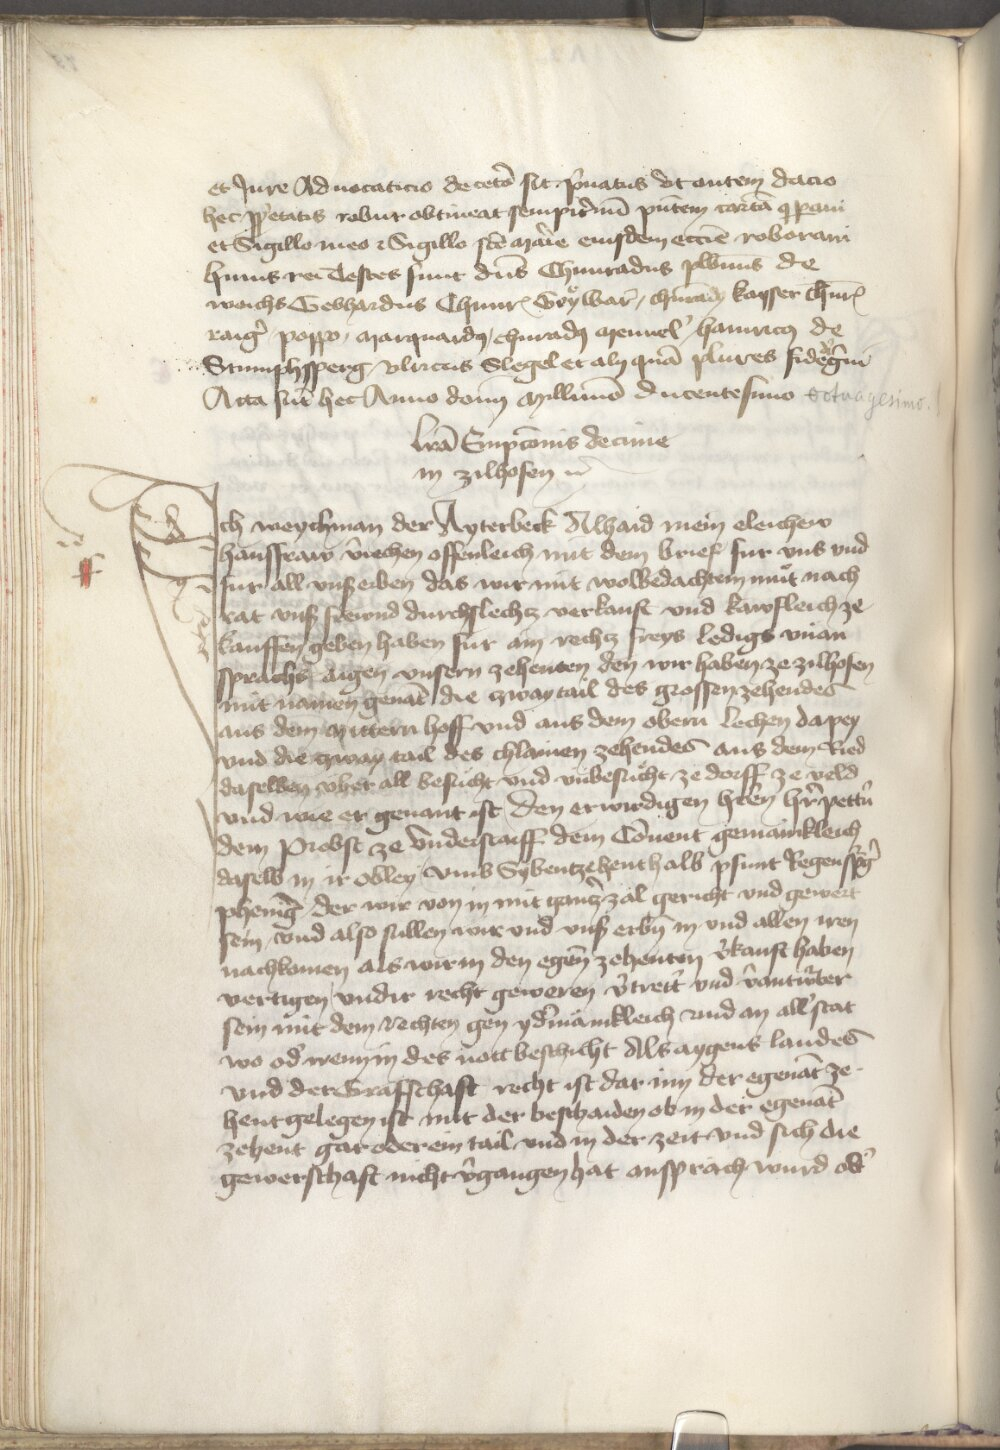 et Jure Aduocaticio decet̄o sit p̄uatus Vt autem dacio
hec ꝓpetatis robur obtineat sempit̓nū pn̄tem cartā
et Sigillo meo ⁊ Sigillo sc̄e Mar̄ie eiusdem eccl̄ie roborari
huius rei Testes sunt dn̄s Chunradus plb̄nus de
weichs Gebhardus Chunr̄ kayser Chūr̄
raig̓ / poppo / Marquardꝰ / chunradꝰ hainricꝰ de
Stumphsperg / vlricus Slegel et alij quā plures fidedigni
Acta sūt hec Anno domī Millimō Ducentesimo octuagesimo.
Lrā Empcōnis decime
in zilhofen
Ich weychman der Ayterbeck Alhaid mein eleichew
hausfraw v̄iechen offenleich mit dem brief fur vns vnd
fur all vnß erben das wir mit wolbedachtem mut nach
rat vnß frewnd durchslechtz verkauft vnd kawfleich ze
kauffen geben haben fur ain rechtz freys ledigs vnan
sprachs aigen vnsern zehenten den wir haben ze zilhofen
mit namen genāt die zway tail des grossen zehendes
aus dem Mittern hoff vnd aus dem obern lechen dapey
vnd die zway tail des chlainen zehendes aus dem Ried
daselben vber all besucht vnd vnbesucht ze dorff ze veld
vnd wie er genant ist / Den erwirdigen her̄n h̄r pettn̄
dem Probst ze Vnderstarff dem Cōuent gemainkleich
daselb in ir obley vmb Sybentzehenthalb pfunt Regenspg̓
phenig̓ der wir von in mit gantz̓ zal gericht vnd gewert
sein / vnd also sullen wir vnd vnß erbn̄ in vnd allen iren
nachkomen als wir in den egen̄ zehenten v̓kauft haben
vertigen vnd ir recht geweren v̓tret̓ vnd v̓antw̓ter
sein mit dem Rechten gen yd̓mainkleich vnd an all̓ stat
wo od̓ wenn in des nott beschicht Als aygens landes
vnd der Grafschaft recht ist dar inn der egenāt ze-
hent gelegen ist mit der beschaiden ob in der egenāt
zehent gar oder ein tail vnd in der zeit vnd sich die
gewerschaft nicht v̓gangen hat ansprach wurd od̓